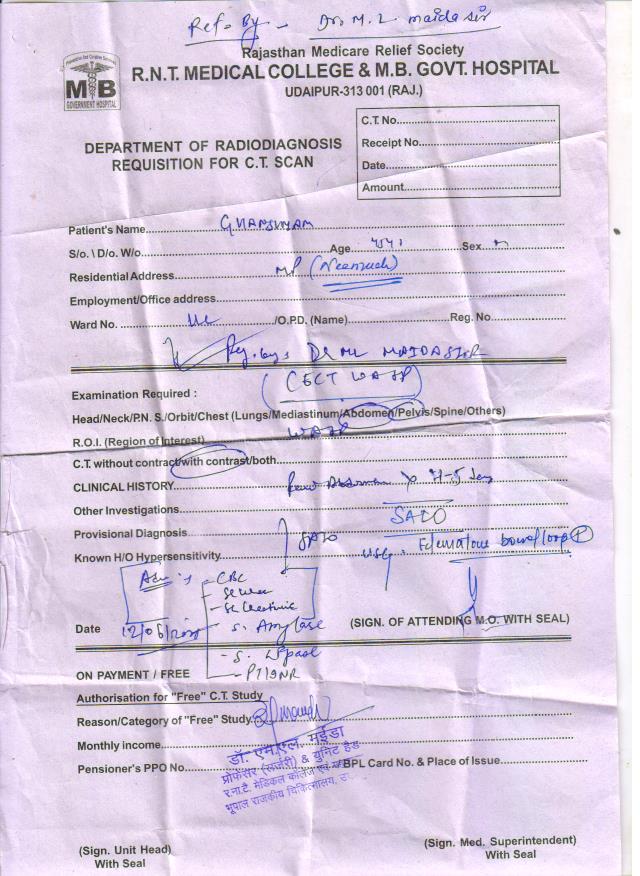 Ref= By - Dr. M. L maida sir
Rajasthan Medicare Relief Society
R.N.T. MEDICAL COLLEGE & M.B. GOVT. HOSPITAL
UDAIPUR-313 001 (RAJ.)
MB
GOVERNMENT HOSPITAL
C.T. No.
Receipt No.
Date
Amount
DEPARTMENT OF RADIODIAGNOSIS
REQUISITION FOR C.T. SCAN
Patient's Name GHANSHYAM
S/o. \ D/o. W/o Age Sex m
Residential Address MP (Neemuch)
Employment/Office address
Ward No. /O.P.D. (Name) Reg. No
Dr ML MAIDA SIR
(CECT WAP)
Examination Required :
Head/Neck/P.N. S./Orbit/Chest (Lungs/Mediastinum/Abdomen/Pelvis/Spine/Others)
R.O.I. (Region of Interest)
C.T. without contract/with contrast/both
CLINICAL HISTORY
Other Investigations SAIO
Provisional Diagnosis SAIO
Known H/O Hypersensitivity USG: Edematous bowel loop
Adv
- CBC
- S. Urea
- S. Creatinine
Date 12/06/ - S. Amylase (SIGN. OF ATTENDING M.O. WITH SEAL)
- S. Lipase
ON PAYMENT / FREE - PT/INR
Authorisation for "Free" C.T. Study
Reason/Category of "Free" Study
Monthly income
डॉ. एम.एल. मईडा
Pensioner's PPO No BPL Card No. & Place of Issue
प्रोफेसर (सर्जरी) & युनिट हैड
र.ना.टै. मेडिकल कॉलेज एवं
भूपाल राजकीय चिकित्सालय, उ
(Sign. Unit Head) (Sign. Med. Superintendent)
With Seal With Seal